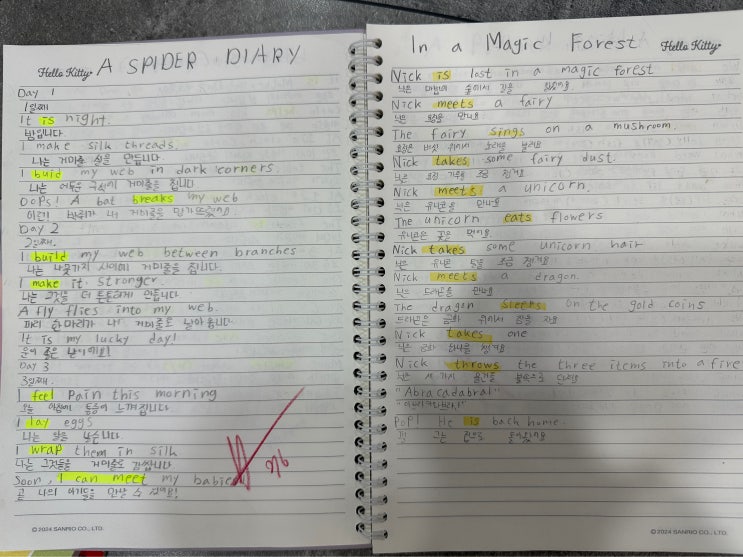 Hello Kitty
A SPIDER DIARY
Day 1
1일째
It is night.
밤입니다.
I make silk threads.
나는 거미줄 실을 만듭니다.
I buid my web in dark corners.
나는 어두운 구석에 거미줄을 칩니다
Oops! A bat breaks my web
이런! 박쥐가 내 거미줄을
Day 2
2일째.
I build my web between branches
나는 나뭇가지 사이에 거미줄을 칩니다.
I make it stronger.
나는 그것을 더 튼튼하게 만듭니다
A fly flies into my web.
파리 한 마리가 내 거미줄로 날아 옵니다.
It is my lucky day!
운이 좋은 날이에요!
Day 3
3일째.
I feel Pain this morning
오늘 아침에 통증이 느껴집니다
I lay eggs
나는 알을 낳습니다.
I wrap them in silk
나는 그것들을 거미줄로 감쌉니다
Soon, I can meet my babies
곧 나의 아기들을 만날 수 있어요!
© 2024 SANRIO CO., LTD.
In a Magic Forest
Hello Kitty
Nick is lost in a magic forest
닉은 마법의 숲에서 길을 잃었어요
Nick meets a fairy
닉은 요정을 만나요
The fairy sings on a mushroom.
요정은 버섯 위에서 노래를 불러요
Nick takes some fairy dust.
닉은 요정 가루를 조금 챙겨요
Nick meets a unicorn.
닉은 유니콘을 만나요
The unicorn eats flowers
유니콘은 꽃을 먹어요.
Nick takes some unicorn hair
닉은 유니콘 털을 조금 챙겨요
Nick meets a dragon.
닉은 드래곤을 만나요
The dragon sleeps on the gold coins
드래곤은 금화 위에서 잠을 자요
Nick takes one
닉은 금화 하나를 챙겨요
Nick throws the three items into a fire
닉은 세 가지 물건을 불속으로 던져요
"Abra cadabra!"
"아브라카다브라!"
Pop! He is bach home.
펑 그는 집으로 돌아왔어요
© 2024 SANRIO CO., LTD.